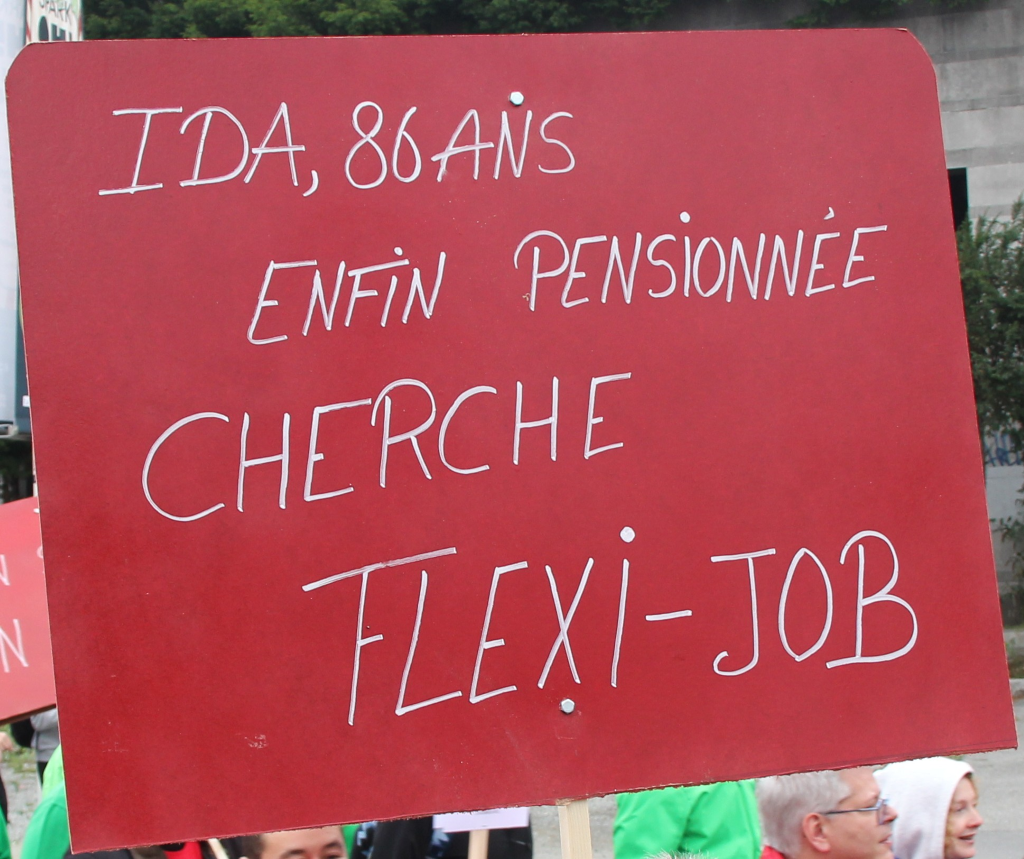 IDA, 86 ANS
ENFIN PENSIONNÉE
CHERCHE
FLEXI-JOB